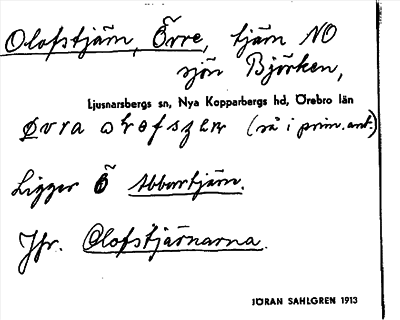 Olofstjärn, Övre, tjärn NO
sjön Björken,
Ljusnarsbergs sn, Nya Kopparbergs hd, Örebro län
(så i prim.ant.)
Ligger Ö Abbortjärn.
Jfr. Olofstjärnarna.
JÖRAN SAHLGREN 1913